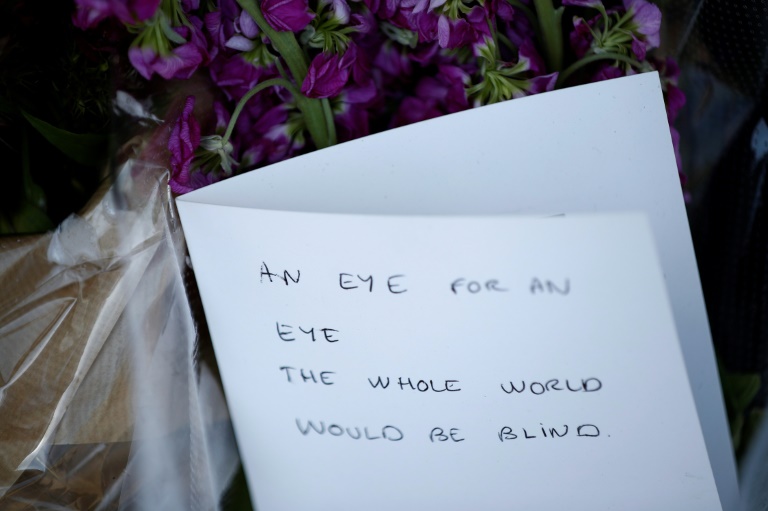 AN EYE FOR AN
EYE
THE WHOLE WORLD
WOULD BE BLIND.